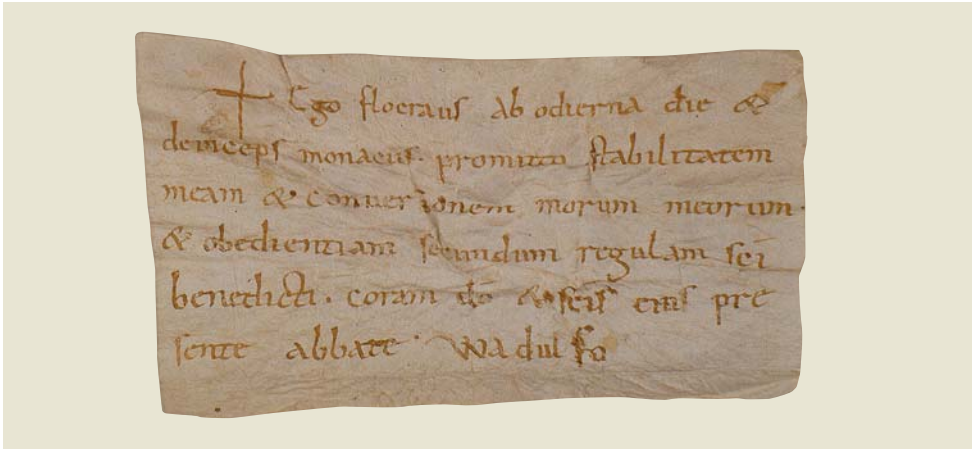 ✝ Ego floeraus ab odierna die &
deinceps monacus. promitto stabilitatem
meam & conversionem morum meorum.
& obedientiam secundum regulam sc̄i
benedicti. coram dō & sc̄is eius pre
sente abbate wadulfo